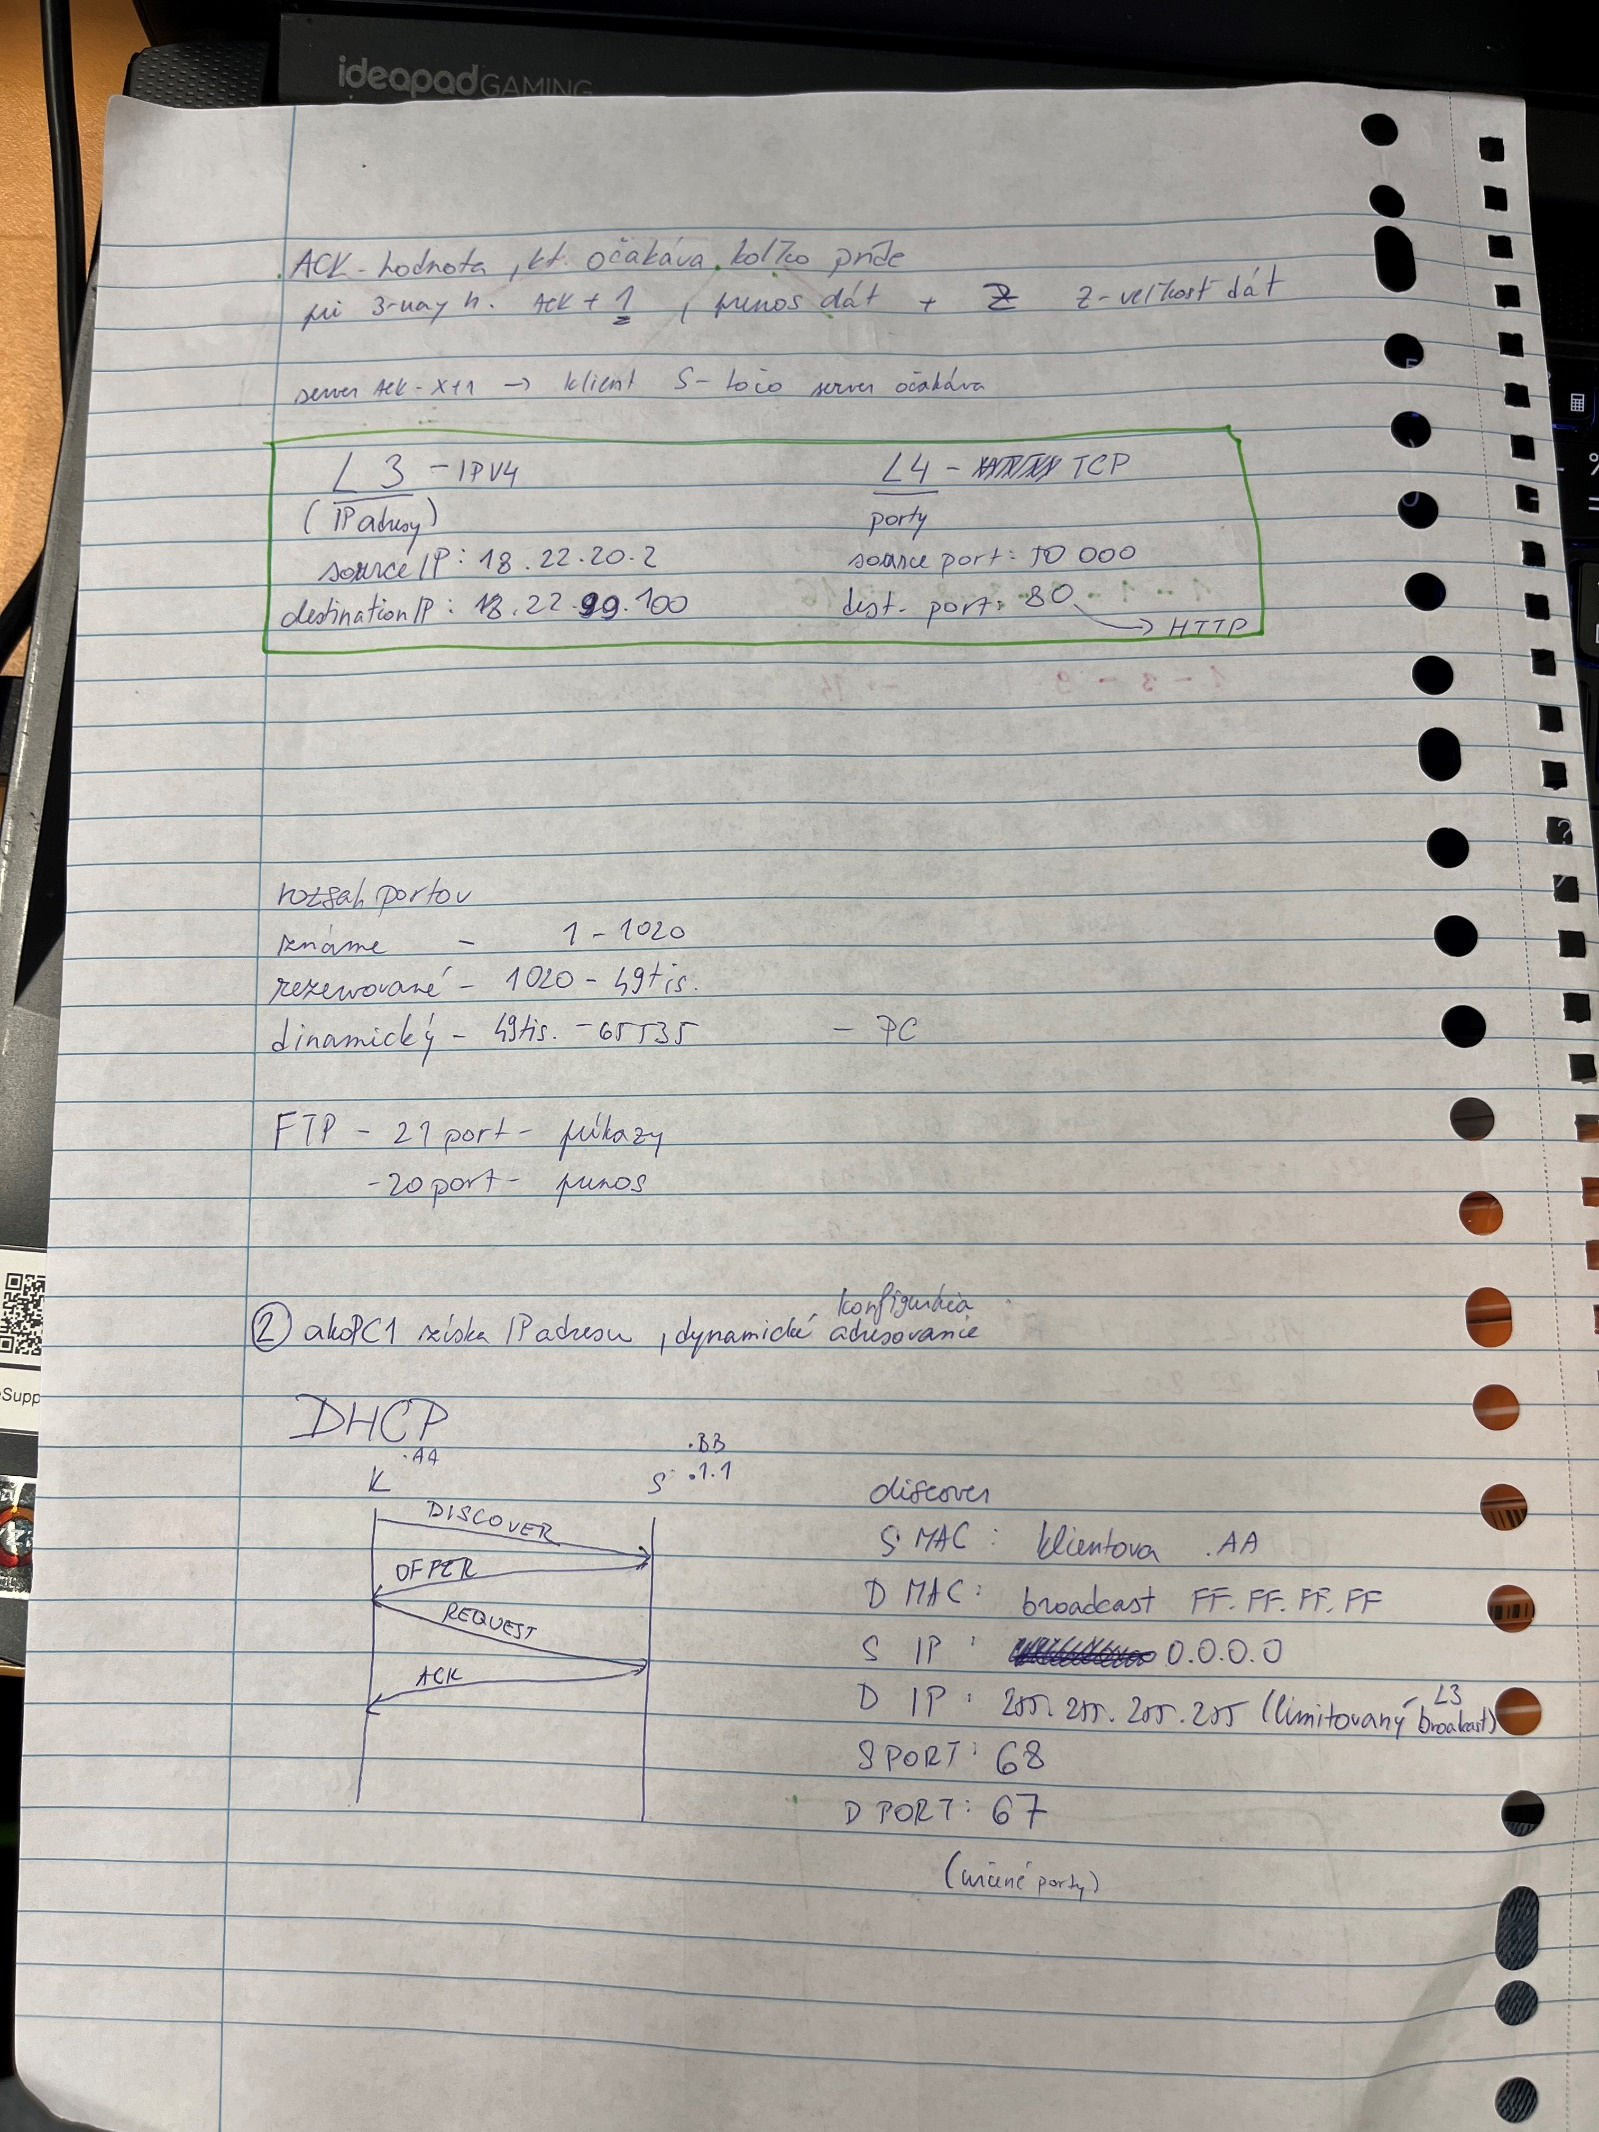 ideapad GAMING
ACK - hodnota, kt. očakáva, koľko príde
pri 3-way h. ACK + 1, prenos dát + Z Z - veľkosť dát
server ACK - X+1 → klient S - točo server očakáva
L3 - IPV4
(IP adresy)
source IP: 18.22.20.2
destination IP: 18.22.99.100
L4 - TCP
porty
source port: 50 000
dest. port: 80
→ HTTP
rozsah portov
známe - 1 - 1020
rezervované - 1020 - 49tis.
dinamický - 49tis. - 65535 - PC
FTP - 21 port - príkazy
- 20 port - prenos
konfigurácia
2 ako PC1 získa IP adresu, dynamické adresovanie
DHCP
.AA
K
.BB
S .1.1
DISCOVER
OFFER
REQUEST
ACK
discover
S MAC: klientova .AA
D MAC: broadcast FF.FF.FF.FF
S IP: 0.0.0.0
D IP: 255.255.255.255 (limitovaný L3 broakast)
S PORT: 68
D PORT: 67
(určené porty)
Supp